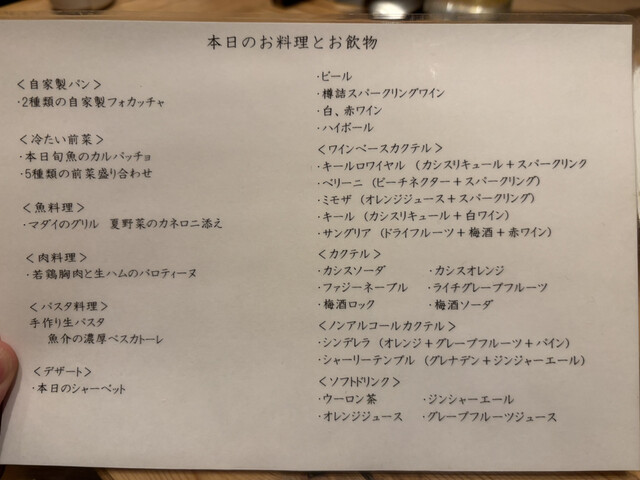 本日のお料理とお飲物
＜自家製パン＞
・2種類の自家製フォカッチャ
＜冷たい前菜＞
・本日旬魚のカルパッチョ
・5種類の前菜盛り合わせ
＜魚料理＞
・マダイのグリル　夏野菜のカネロニ添え
＜肉料理＞
・若鶏胸肉と生ハムのバロティーヌ
＜パスタ料理＞
手作り生パスタ
魚介の濃厚ペスカトーレ
＜デザート＞
・本日のシャーベット
・ビール
・樽詰スパークリングワイン
・白、赤ワイン
・ハイボール
＜ワインベースカクテル＞
・キールロワイヤル　（カシスリキュール＋スパークリンク
・ベリーニ　（ピーチネクター＋スパークリング）
・ミモザ　（オレンジジュース＋スパークリング）
・キール　（カシスリキュール＋白ワイン）
・サングリア　（ドライフルーツ＋梅酒＋赤ワイン）
＜カクテル＞
・カシスソーダ　・カシスオレンジ
・ファジーネーブル　・ライチグレープフルーツ
・梅酒ロック　・梅酒ソーダ
＜ノンアルコールカクテル＞
・シンデレラ　（オレンジ＋グレープフルーツ＋パイン）
・シャーリーテンプル　（グレナデン＋ジンジャーエール）
＜ソフトドリンク＞
・ウーロン茶　・ジンシャーエール
・オレンジジュース　・グレープフルーツジュース